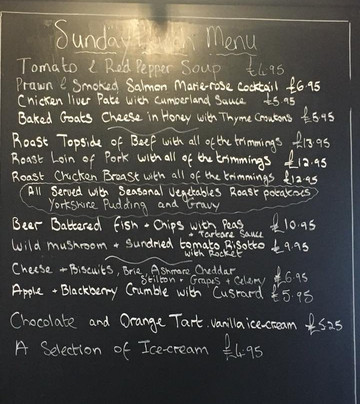 Sunday Lunch Menu
Tomato & Red Pepper Soup £4.95
Prawn & Smoked Salmon Marie-rose cocktail £6.95
Chicken liver Pate with Cumberland Sauce £5.95
Baked Goats Cheese in Honey with Thyme Croutons £5.95
Roast Topside of Beef with all of the trimmings £13.95
Roast Loin of Pork with all of the trimmings £12.95
Roast Chicken Breast with all of the trimmings £12.95
All Served with Seasonal Vegetables Roast potatoes
Yorkshire Pudding and Gravy
Beer Battered fish + Chips with Peas £10.95
+ Tartare Sauce
Wild mushroom + Sundried tomato Risotto £9.95
with Rocket
Cheese + Biscuits, Brie, Ashmore Cheddar
Stilton + Grapes + Celery £6.95
Apple + Blackberry Crumble with Custard £5.95
Chocolate and Orange Tart. vanilla ice-cream £5.25
A Selection of Ice-cream £4.95